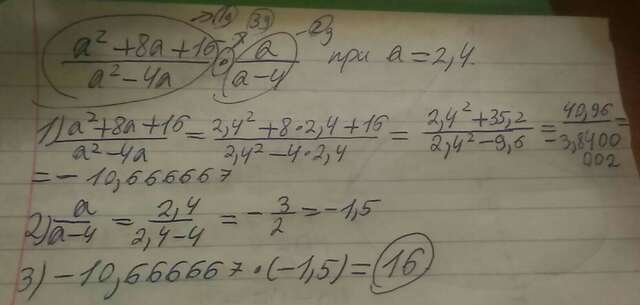 a² + 8a + 16 / a² - 4a · a / a - 4 при a = 2,4.
1) a² + 8a + 16 / a² - 4a = 2,4² + 8 · 2,4 + 16 / 2,4² - 4 · 2,4 = 2,4² + 35,2 / 2,4² - 9,6 = 40,96 / -3,8400002 =
= - 10,666667
2) a / a - 4 = 2,4 / 2,4 - 4 = - 3 / 2 = -1,5
3) - 10,666667 · (-1,5) = 16